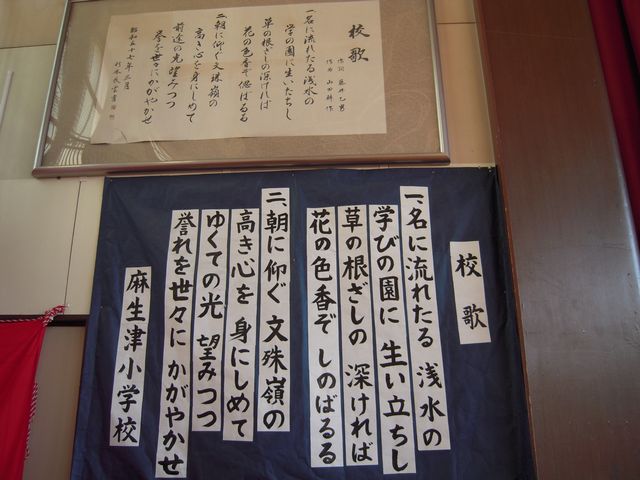 校歌
作詞 藤井乙男
作曲 山田耕作
一、名に流れたる浅水の
学の園に生いたちし
草の根ざしの深ければ
花の色香ぞ偲ばるる
二、朝に仰ぐ文珠嶺の
高き心を身にしめて
前途の光望みつつ
誉を世々にかがやかせ
昭和五十七年三月
校歌
一、名に流れたる 浅水の
学びの園に 生い立ちし
草の根ざしの 深ければ
花の色香ぞ しのばるる
二、朝に仰ぐ 文珠嶺の
高き心を 身にしめて
ゆくての光 望みつつ
誉れを世々に かがやかせ
麻生津小学校